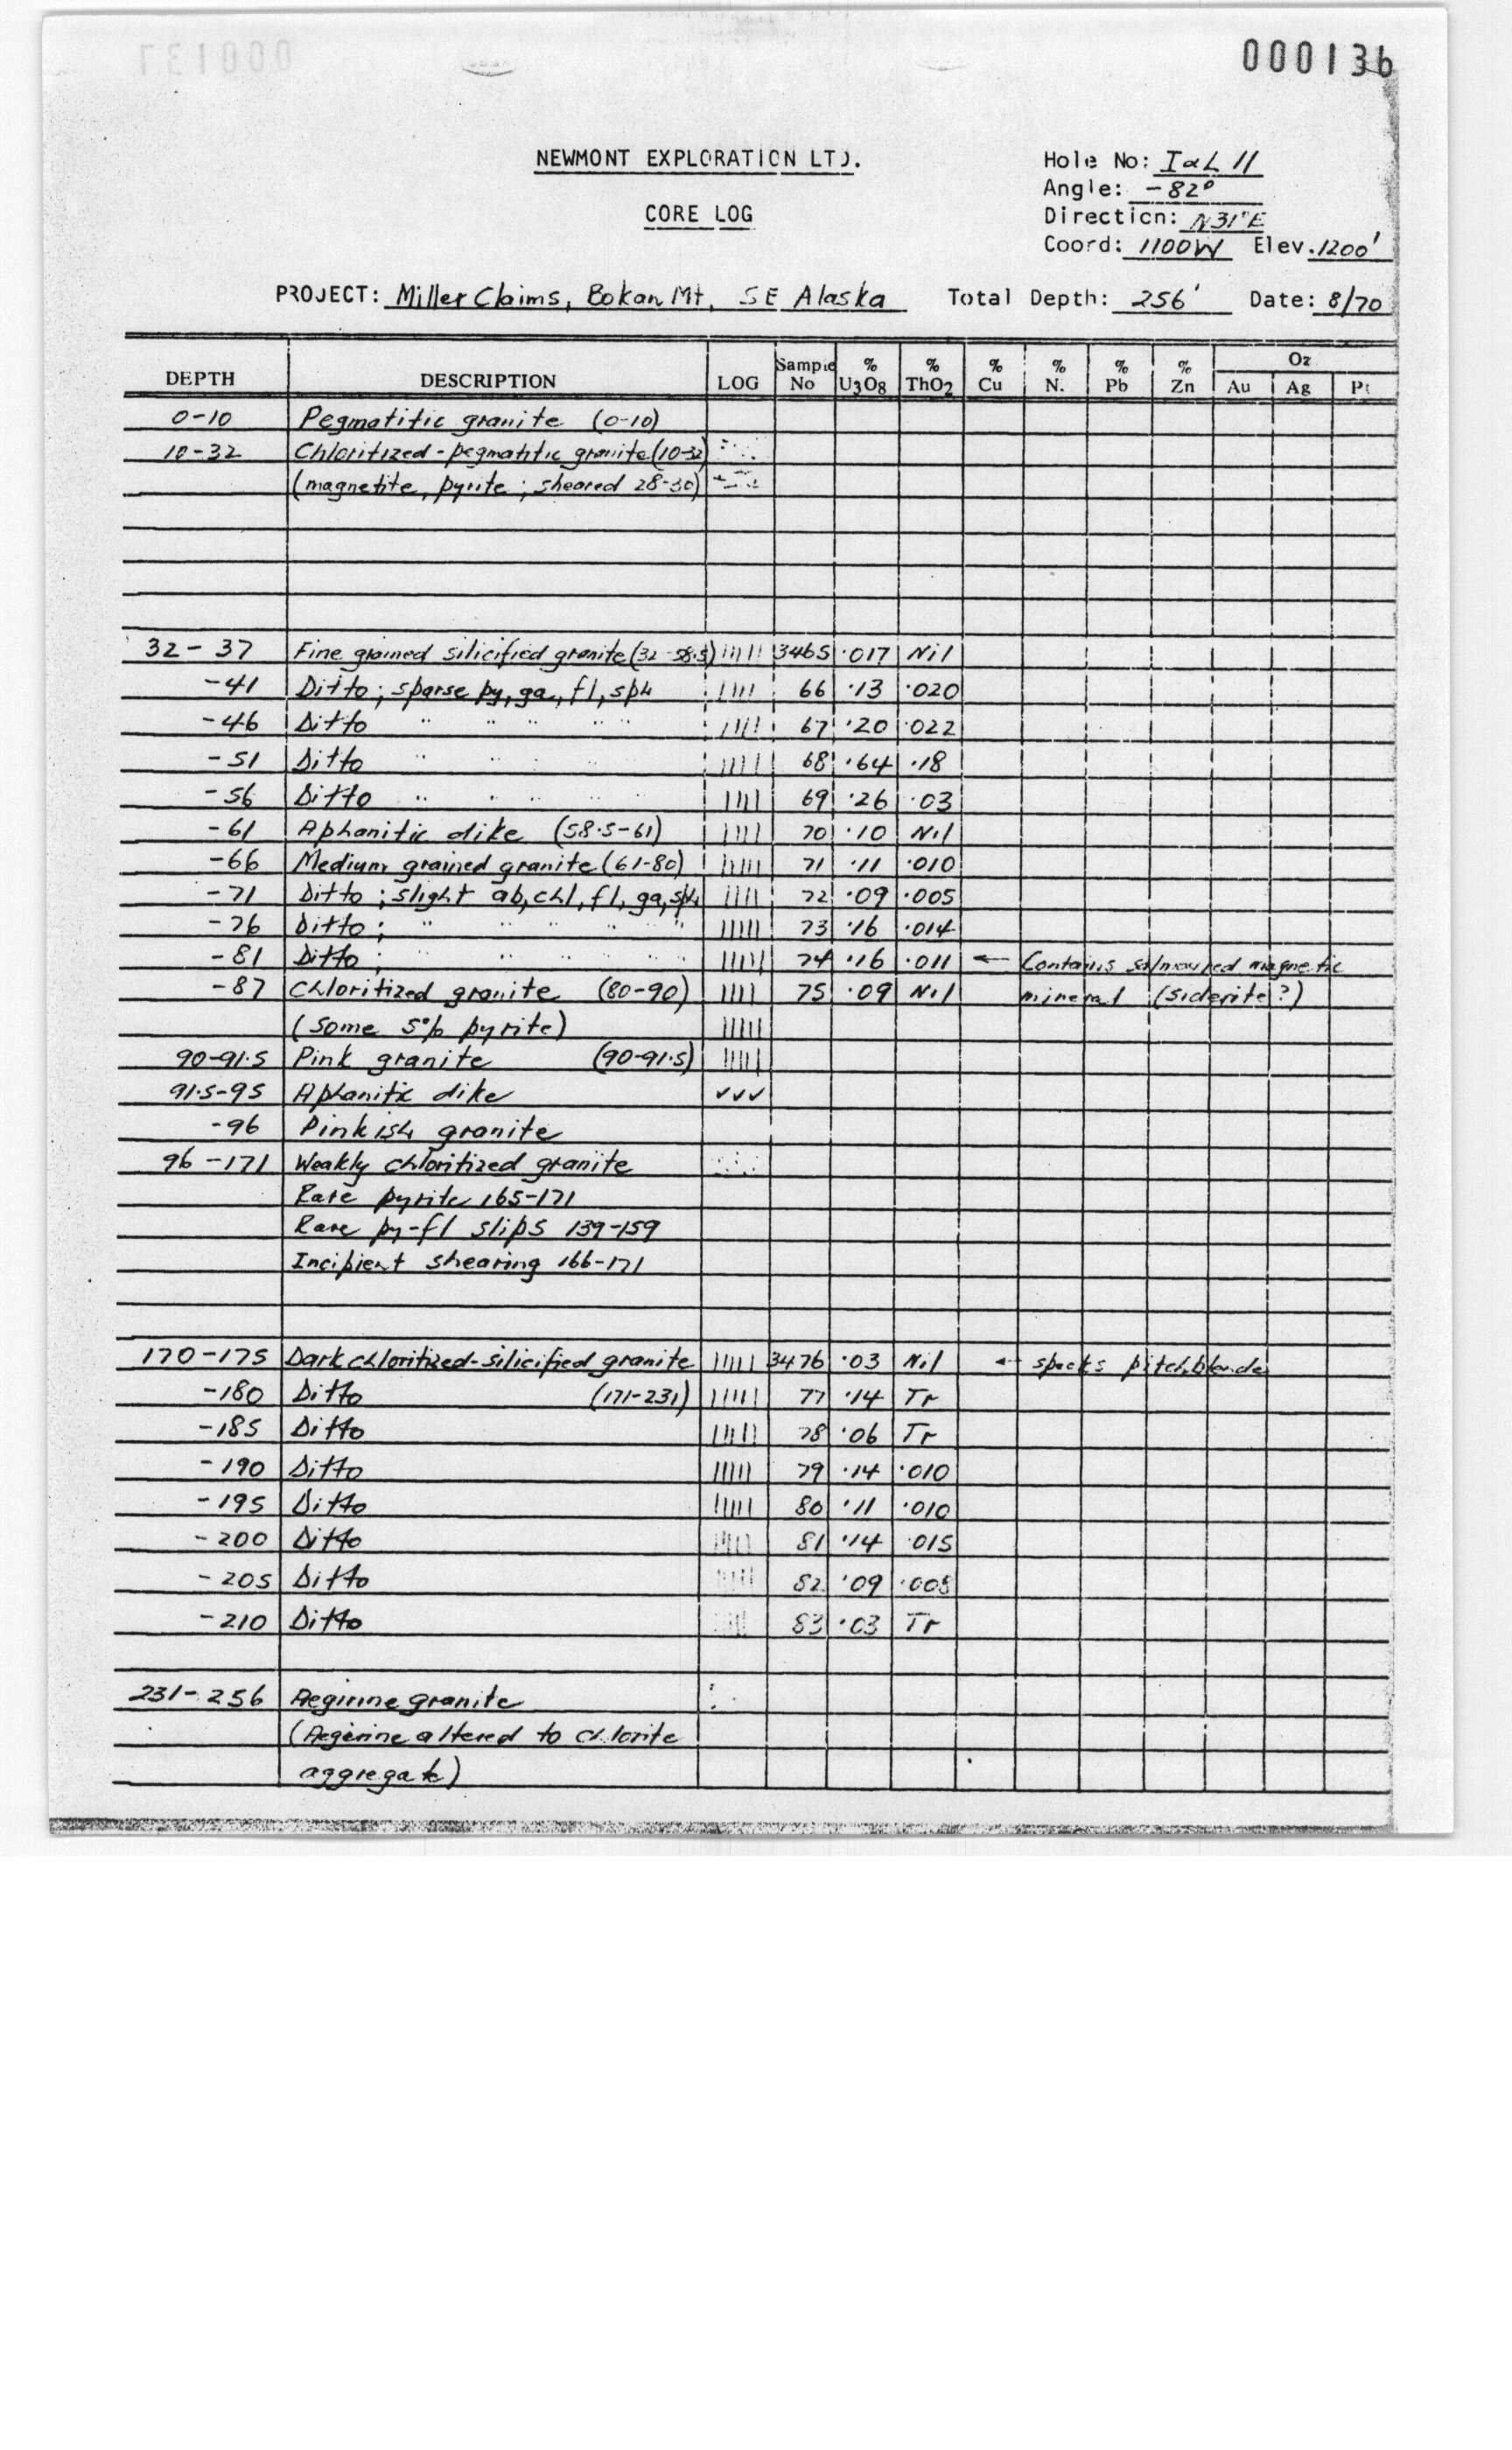 000136
NEWMONT EXPLORATION LTD.
CORE LOG
Hole No: I & L 11
Angle: -82°
Direction: N31°E
Coord: 1100W Elev. 1200'
PROJECT: Miller Claims, Bokan Mt, SE Alaska Total Depth: 256' Date: 8/70
DEPTH DESCRIPTION LOG Sample No % U3O8 % ThO2 % Cu % N. % Pb % Zn Oz Au Ag Pt
0-10 Pegmatitic granite (0-10)
10-32 Chloritized-pegmatitic granite (10-32)
(magnetite, pyrite; sheared 28-30)
32-37 Fine grained silicified granite (32-58.5) 3465 .017 Nil
-41 Ditto; sparse py, ga, fl, sph 66 .13 .020
-46 Ditto " " " " 67 .20 .022
-51 Ditto " " " " 68 .64 .18
-56 Ditto " " " " " 69 .26 .03
-61 Aphanitic dike (58.5-61) 70 .10 Nil
-66 Medium grained granite (61-80) 71 .11 .010
-71 Ditto; slight ab, chl, fl, ga, sph 72 .09 .005
-76 Ditto; " " " " " 73 .16 .014
-81 Ditto; " " " " " 74 .16 .011 ← Contains magnetic
-87 Chloritized granite (80-90) 75 .09 Nil mineral (siderite?)
(some 5% pyrite)
90-91.5 Pink granite (90-91.5)
91.5-95 Aphanitic dike ✓✓✓
-96 Pinkish granite
96-171 Weakly chloritized granite
Rare pyrite 165-171
Rare py-fl slips 139-159
Incipient shearing 166-171
170-175 Dark chloritized-silicified granite 3476 .03 Nil ← specks pitchblende
-180 Ditto (171-231) 77 .14 Tr
-185 Ditto 78 .06 Tr
-190 Ditto 79 .14 .010
-195 Ditto 80 .11 .010
-200 Ditto 81 .14 .015
-205 Ditto 82 .09 .008
-210 Ditto 83 .03 Tr
231-256 Aegirine granite
(Aegirine altered to chlorite
aggregate)